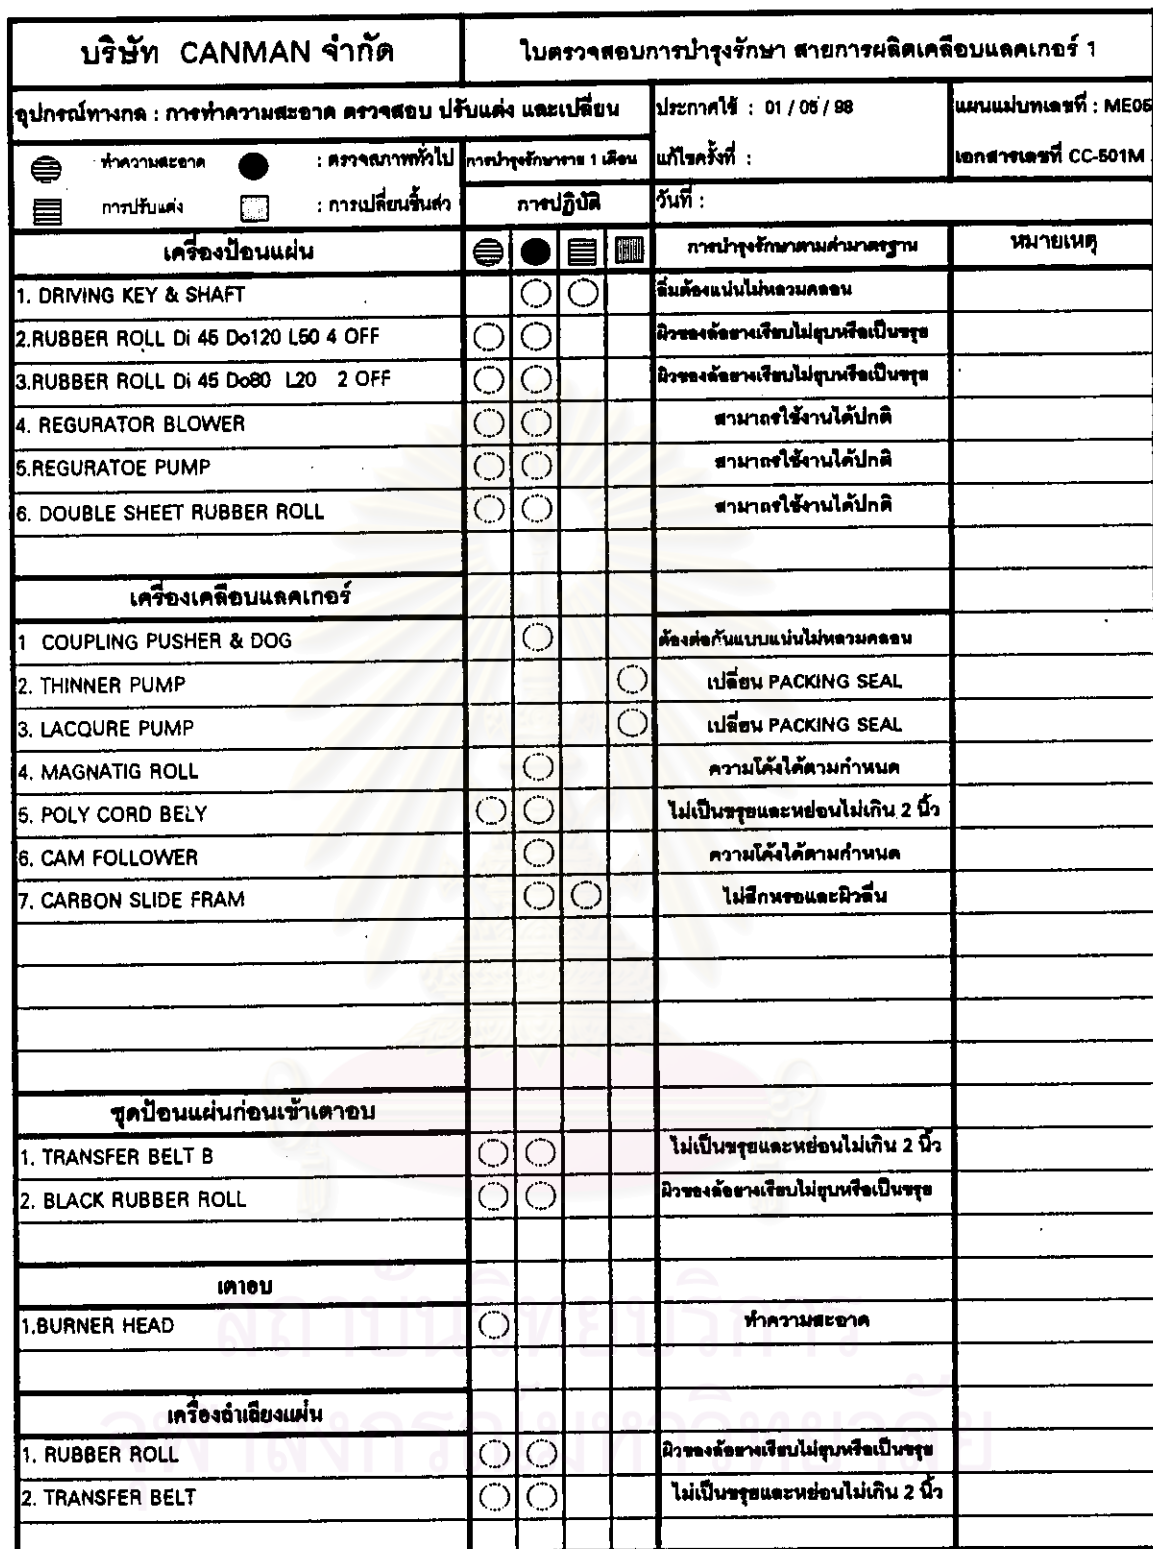 บริษัท CANMAN จำกัด
ใบตรวจสอบการบำรุงรักษา สายการผลิตเคลือบแลคเกอร์ 1
อุปกรณ์ทางกล : การทำความสะอาด ตรวจสอบ ปรับแต่ง และเปลี่ยน
ประกาศใช้ : 01 / 05 / 98
แผนแม่บทเลขที่ : ME05
ทำความสะอาด : ตรวจสภาพทั่วไป
การบำรุงรักษาราย 1 เดือน
แก้ไขครั้งที่ :
เอกสารเลขที่ CC-501M
การปรับแต่ง : การเปลี่ยนชิ้นส่ว
การปฏิบัติ
วันที่ :
เครื่องป้อนแผ่น
การบำรุงรักษาตามค่ามาตรฐาน
หมายเหตุ
1. DRIVING KEY & SHAFT
ลิ่มต้องแน่นไม่หลวมคลอน
2.RUBBER ROLL Di 45 Do120 L50 4 OFF
ผิวของล้อยางเรียบไม่ยุบหรือเป็นขรุย
3.RUBBER ROLL Di 45 Do80 L20 2 OFF
ผิวของล้อยางเรียบไม่ยุบหรือเป็นขรุย
4. REGURATOR BLOWER
สามารถใช้งานได้ปกติ
5.REGURATOE PUMP
สามารถใช้งานได้ปกติ
6. DOUBLE SHEET RUBBER ROLL
สามารถใช้งานได้ปกติ
เครื่องเคลือบแลคเกอร์
1 COUPLING PUSHER & DOG
ต้องต่อกันแบบแน่นไม่หลวมคลอน
2. THINNER PUMP
เปลี่ยน PACKING SEAL
3. LACQURE PUMP
เปลี่ยน PACKING SEAL
4. MAGNATIG ROLL
ความโค้งได้ตามกำหนด
5. POLY CORD BELY
ไม่เป็นขรุยและหย่อนไม่เกิน 2 นิ้ว
6. CAM FOLLOWER
ความโค้งได้ตามกำหนด
7. CARBON SLIDE FRAM
ไม่สึกหรอและผิวลื่น
ชุดป้อนแผ่นก่อนเข้าเตาอบ
1. TRANSFER BELT B
ไม่เป็นขรุยและหย่อนไม่เกิน 2 นิ้ว
2. BLACK RUBBER ROLL
ผิวของล้อยางเรียบไม่ยุบหรือเป็นขรุย
เตาอบ
1.BURNER HEAD
ทำความสะอาด
เครื่องลำเลียงแผ่น
1. RUBBER ROLL
ผิวของล้อยางเรียบไม่ยุบหรือเป็นขรุย
2. TRANSFER BELT
ไม่เป็นขรุยและหย่อนไม่เกิน 2 นิ้ว
สถาบันวิทยบริการ
จุฬาลงกรณ์มหาวิทยาลัย